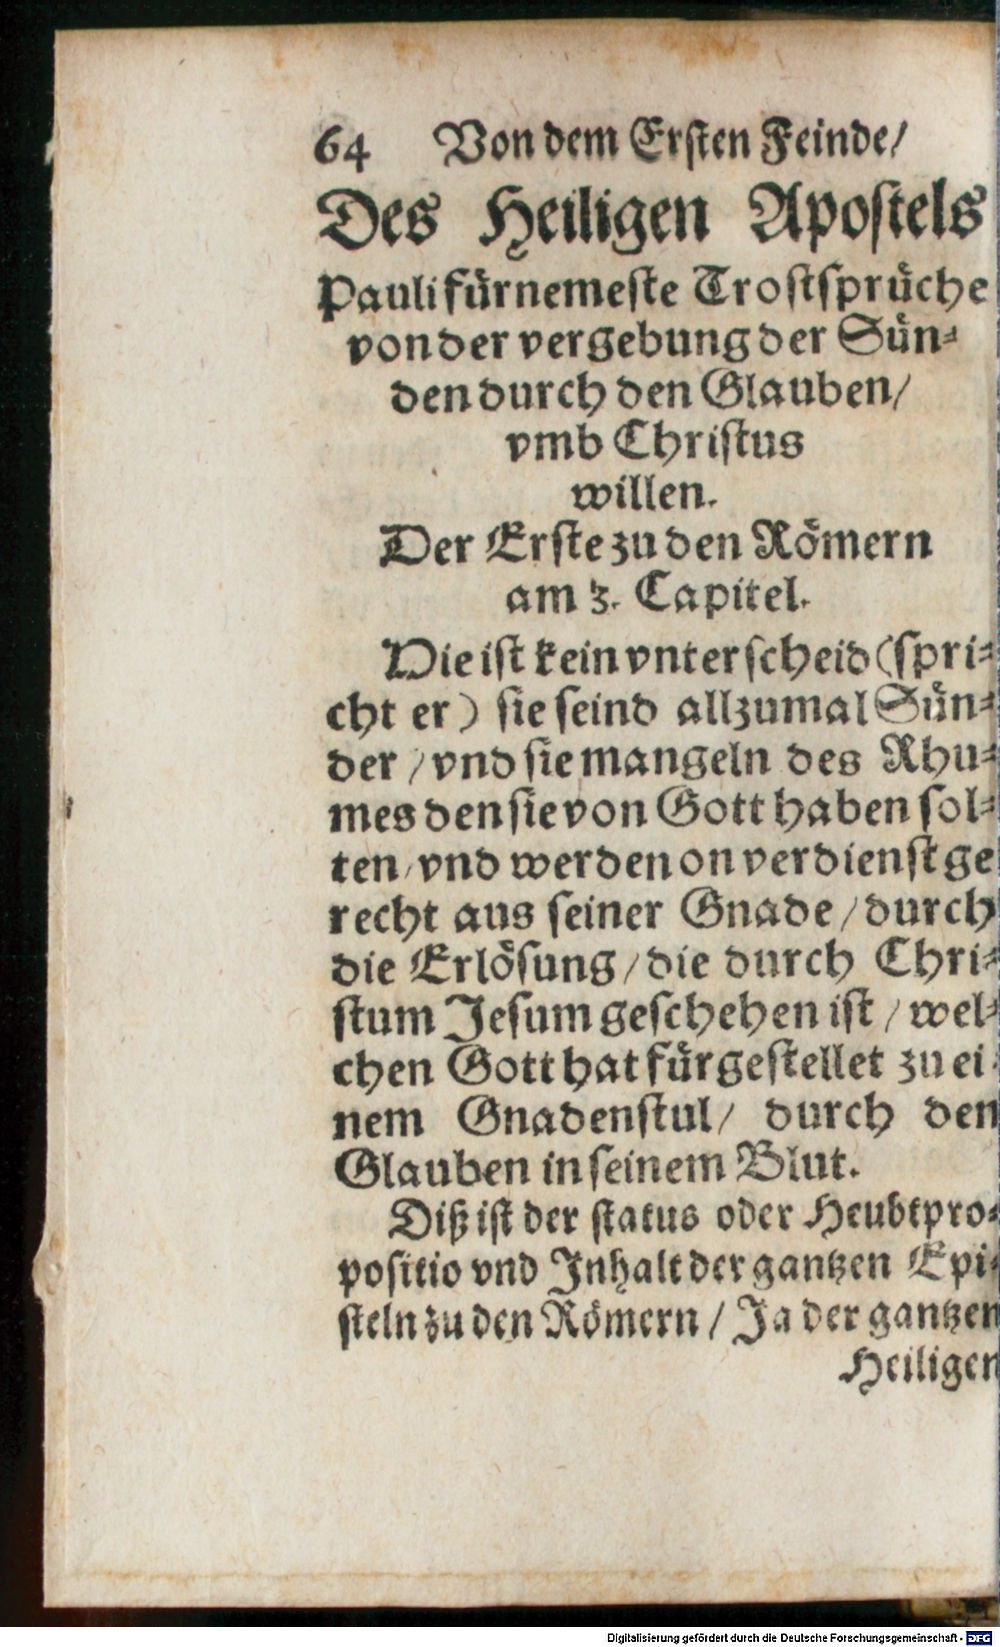 64 Von dem Ersten Feinde/
Des Heiligen Apostels
Pauli fürnemeste Trostsprüche
von der vergebung der Sün⸗
den durch den Glauben/
vmb Christus
willen.
Der Erste zu den Römern
am 3. Capitel.
Die ist kein vnterscheid (spri⸗
cht er) sie seind allzumal Sün⸗
der / vnd sie mangeln des Rhu⸗
mes den sie von Gott haben sol⸗
ten/ vnd werden on verdienst ge
recht aus seiner Gnade / durch
die Erlösung / die durch Chri⸗
stum Jesum geschehen ist / wel⸗
chen Gott hat fürgestellet zu ei⸗
nem Gnadenstul/ durch den
Glauben in seinem Blut.
Diß ist der status oder Heubtpro⸗
positio vnd Inhalt der gantzen Epi⸗
steln zu den Römern / Ja der gantzen
Heiligen
Digitalisierung gefördert durch die Deutsche Forschungsgemeinschaft - DFG